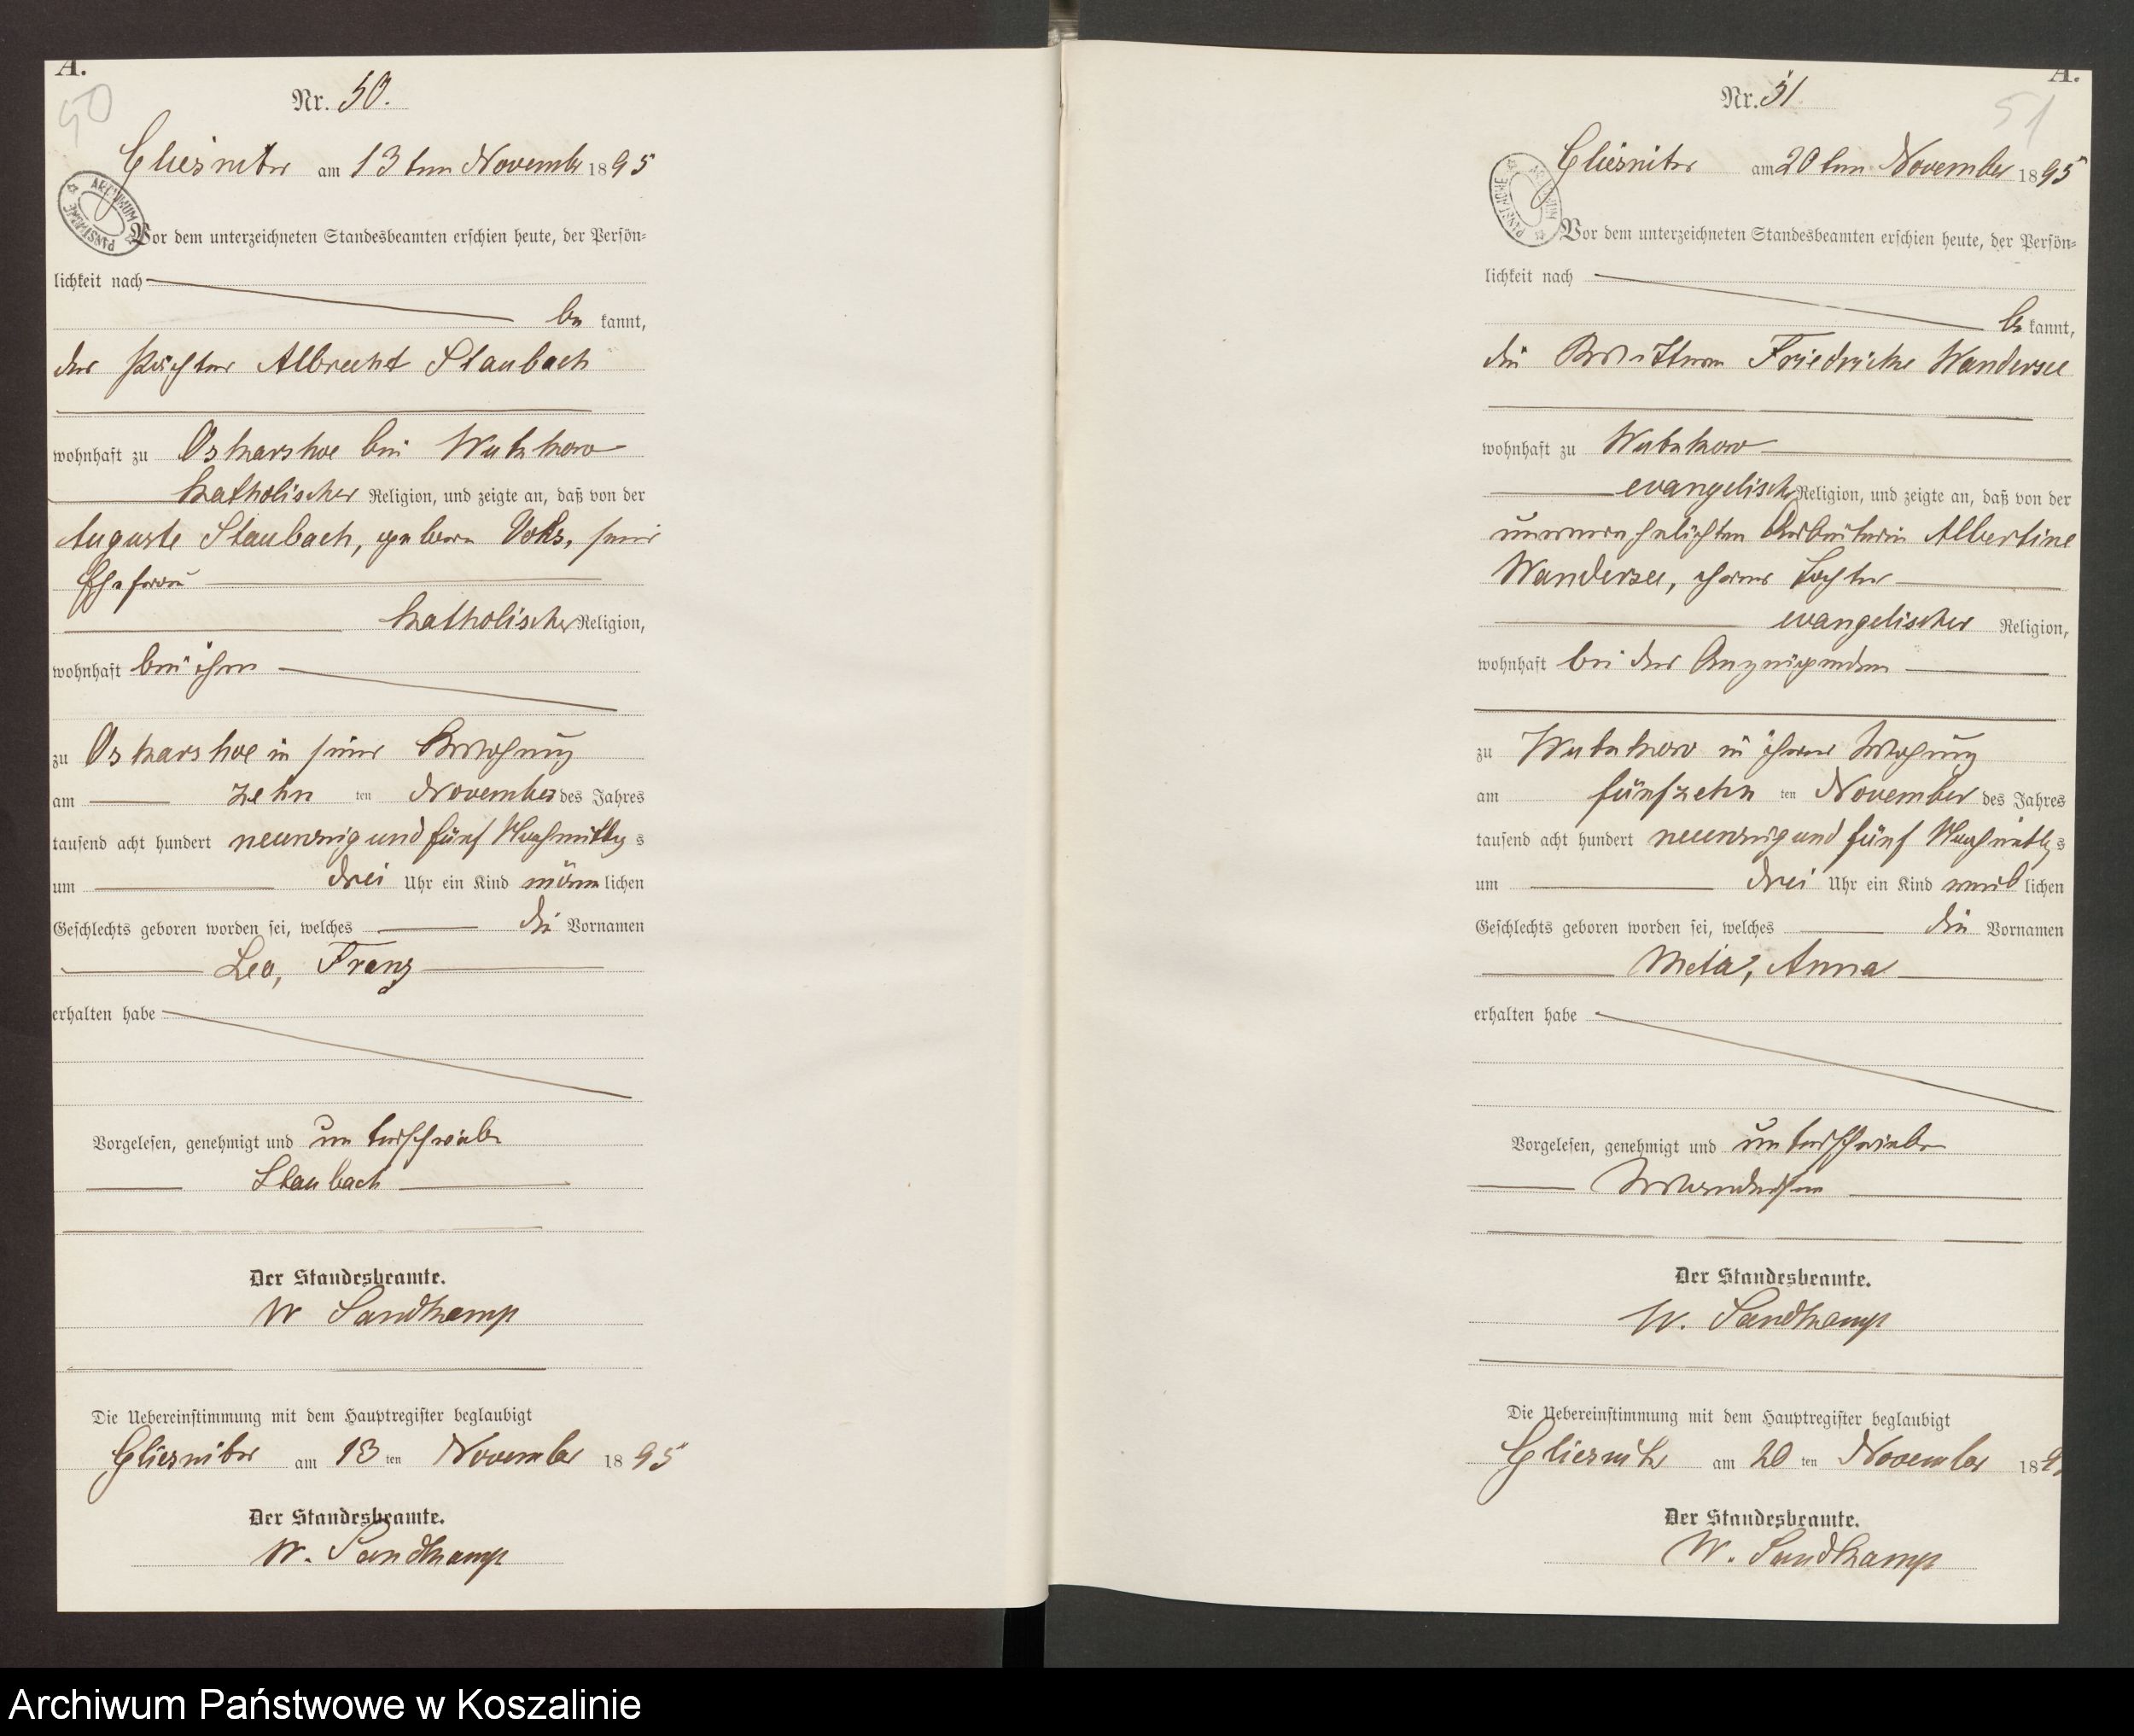 A.
50
Nr. 50.
Gliesnitz am 13ten November 1895
ARCHIWUM PAŃSTWOWE
Vor dem unterzeichneten Standesbeamten erschien heute, der Persön=
lichkeit nach
be kannt,
der Pächter Albrecht Staubach
wohnhaft zu Oskarshoe bei Wutzkow
katholischer Religion, und zeigte an, daß von der
Auguste Staubach, geborn seiner
Ehefrau
katholischer Religion,
wohnhaft bei ihm
zu Oskarshoe in seiner Wohnung
am zehn ten November des Jahres
tausend acht hundert neunzig und fünf Nachmittags
um drei Uhr ein Kind männlichen
Geschlechts geboren worden sei, welches die Vornamen
Leo, Franz
erhalten habe
Vorgelesen, genehmigt und unterschrieben
Staubach
Der Standesbeamte.
W Sandkamp
Die Uebereinstimmung mit dem Hauptregister beglaubigt
Gliesnitz am 13 ten November 1895
Der Standesbeamte.
W. Sandkamp
A.
51
Nr. 51
Gliesnitz am 20ten November 1895
ARCHIWUM PAŃSTWOWE
Vor dem unterzeichneten Standesbeamten erschien heute, der Persön=
lichkeit nach
be kannt,
die Wittwe Friedricke Wandersee
wohnhaft zu Wutzkow
evangelisch Religion, und zeigte an, daß von der
unverehelichten Arbeiterin Albertine
Wandersee, ihrer Tochter
evangelischer Religion,
wohnhaft bei der Anzeigenden
zu Wutzkow in ihrer Wohnung
am fünfzehn ten November des Jahres
tausend acht hundert neunzig und fünf Nachmittags
um drei Uhr ein Kind weiblichen
Geschlechts geboren worden sei, welches die Vornamen
Meta, Anna
erhalten habe
Vorgelesen, genehmigt und unterschrieben
Wandersee
Der Standesbeamte.
W. Sandkamp
Die Uebereinstimmung mit dem Hauptregister beglaubigt
Gliesnitz am 20 ten November 189
Der Standesbeamte.
W. Sandkamp
Archiwum Państwowe w Koszalinie